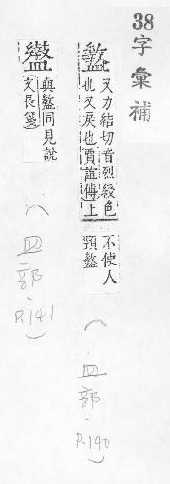 38 字彙補
盭 又力結切音列綟色
也又戾也賈誼傳上
不使人
頸盭
(皿部. P.190)
盭
與盭同見說
文長箋
(皿部. P.141)